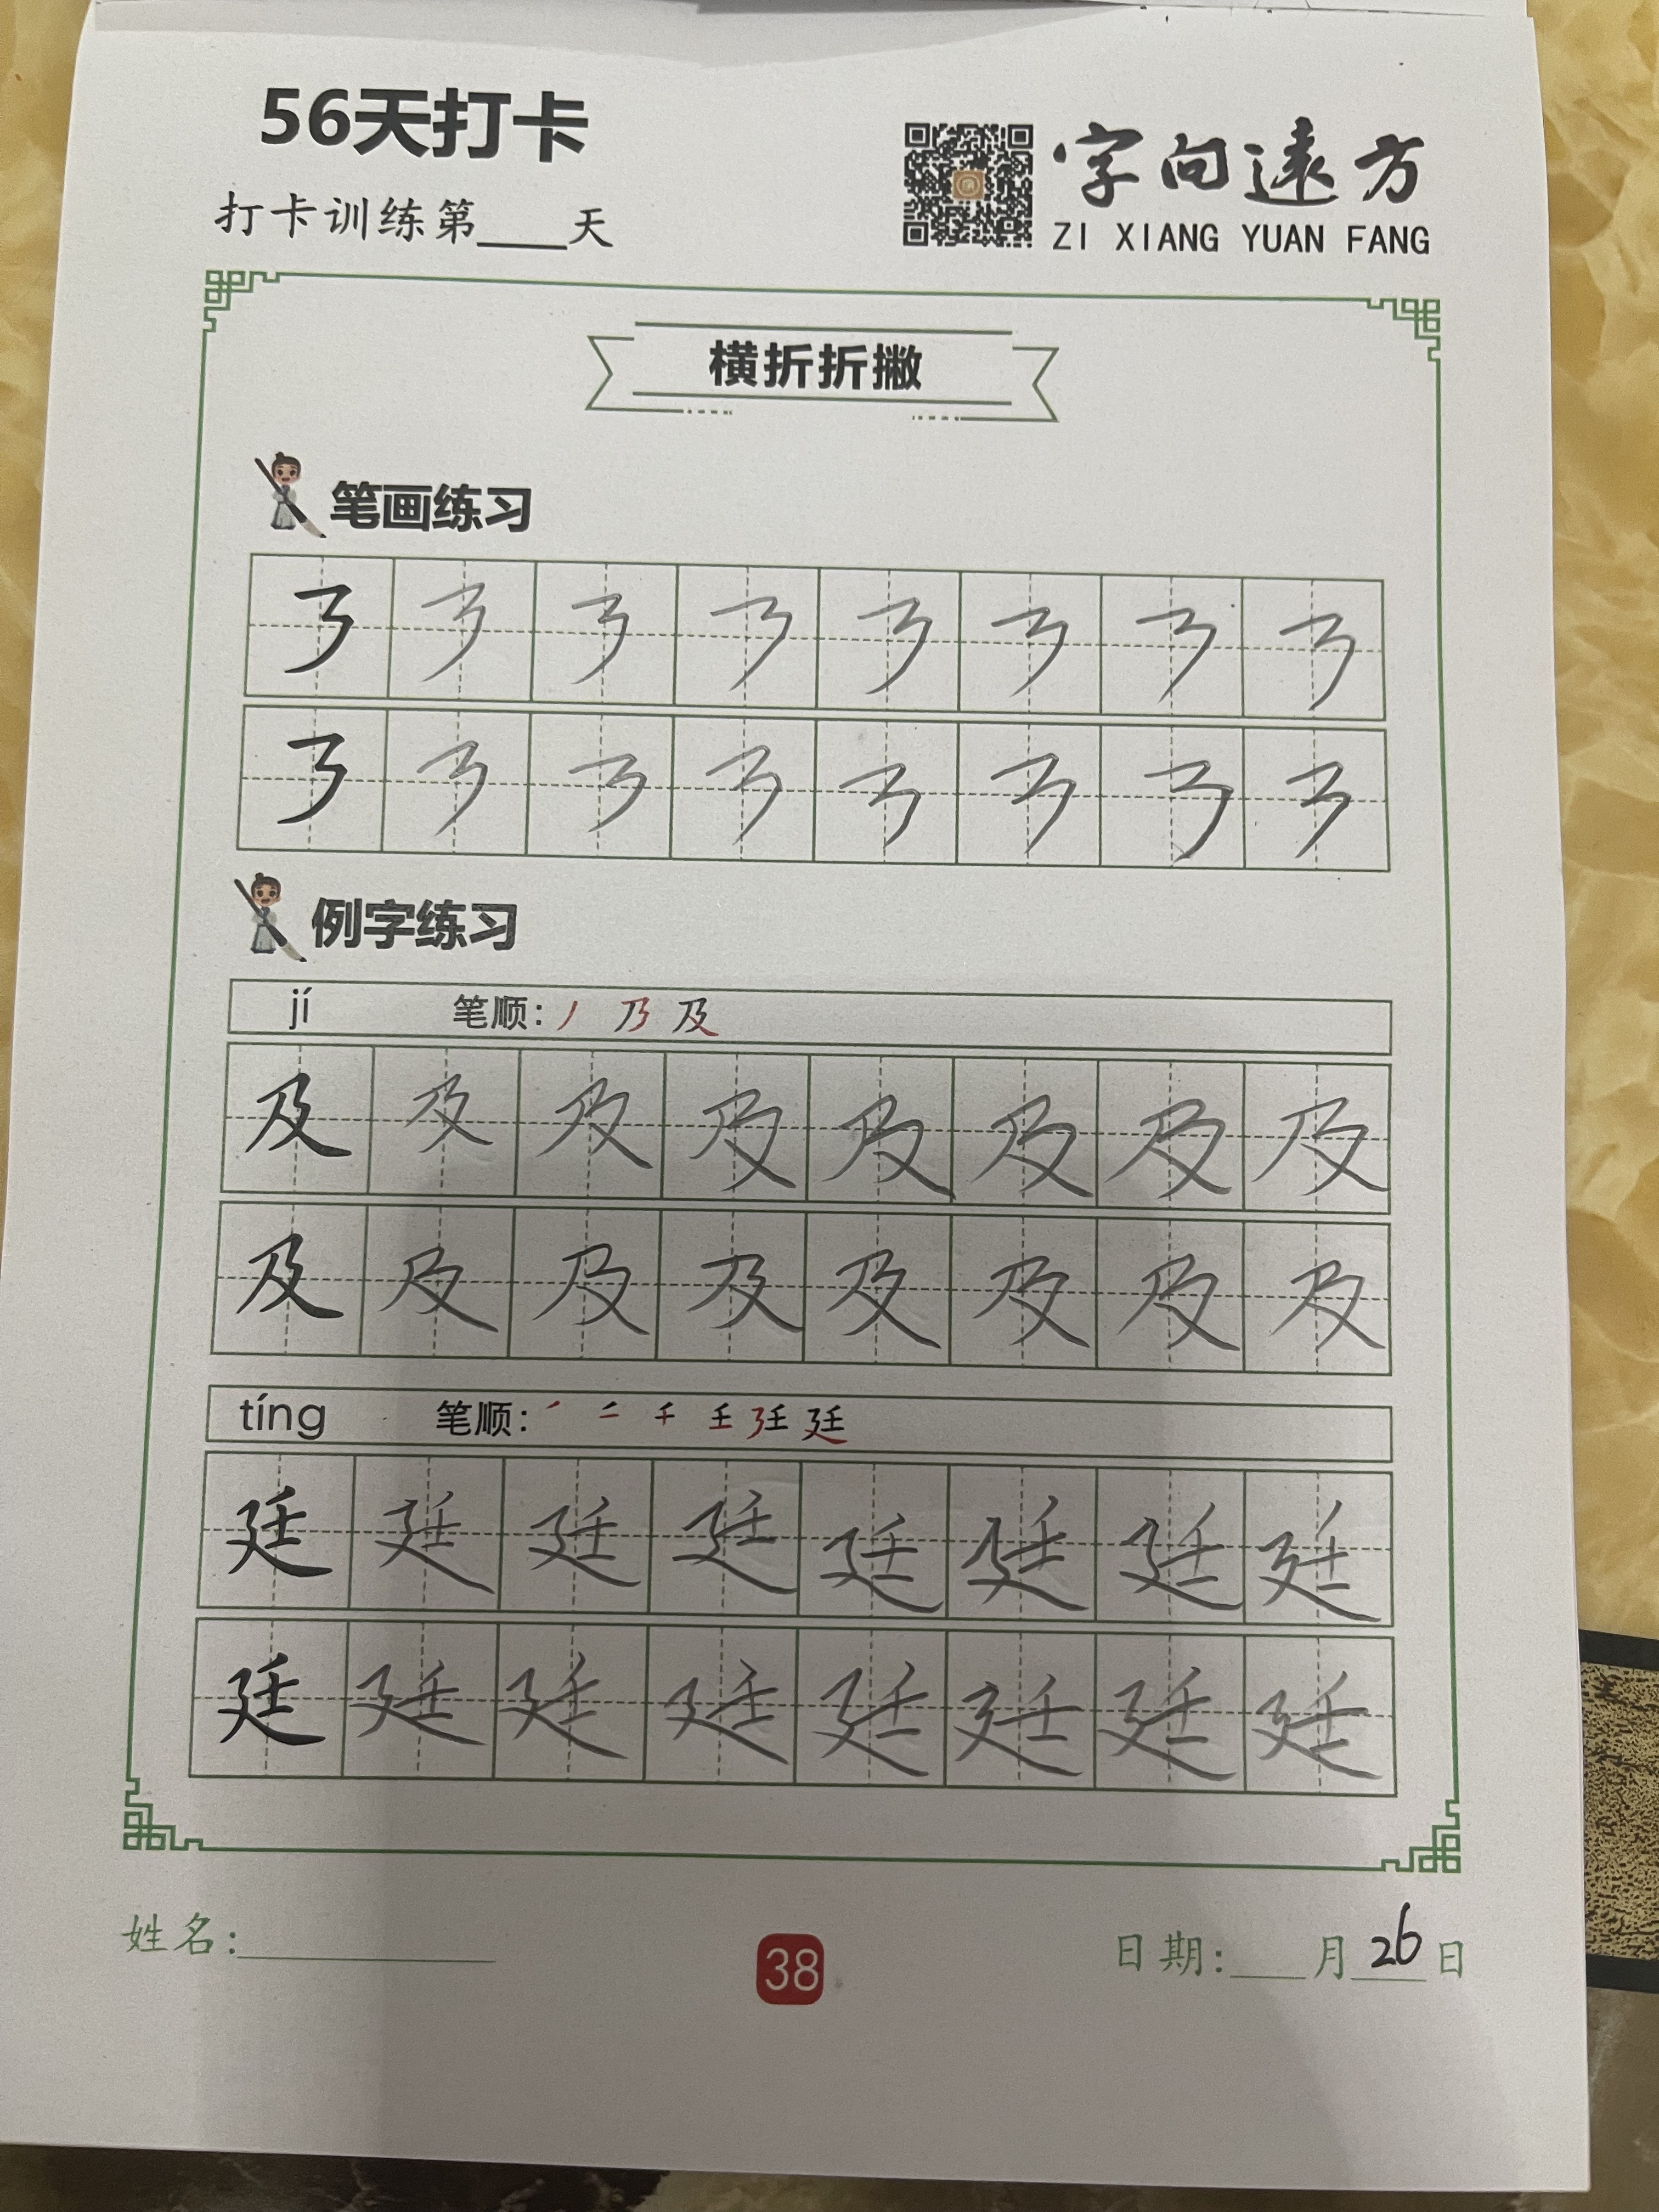 56天打卡
打卡训练第____天
字向远方
ZI XIANG YUAN FANG
横折折撇
笔画练习
㇋ ㇋ ㇋ ㇋ ㇋ ㇋ ㇋ ㇋
㇋ ㇋ ㇋ ㇋ ㇋ ㇋ ㇋ ㇋
例字练习
jí 笔顺：丿 乃 及
及 及 及 及 及 及 及 及
及 及 及 及 及 及 及 及
tíng 笔顺：
廷 廷 廷 廷 廷 廷 廷 廷
廷 廷 廷 廷 廷 廷 廷 廷
姓名：
38
日期：___月26日